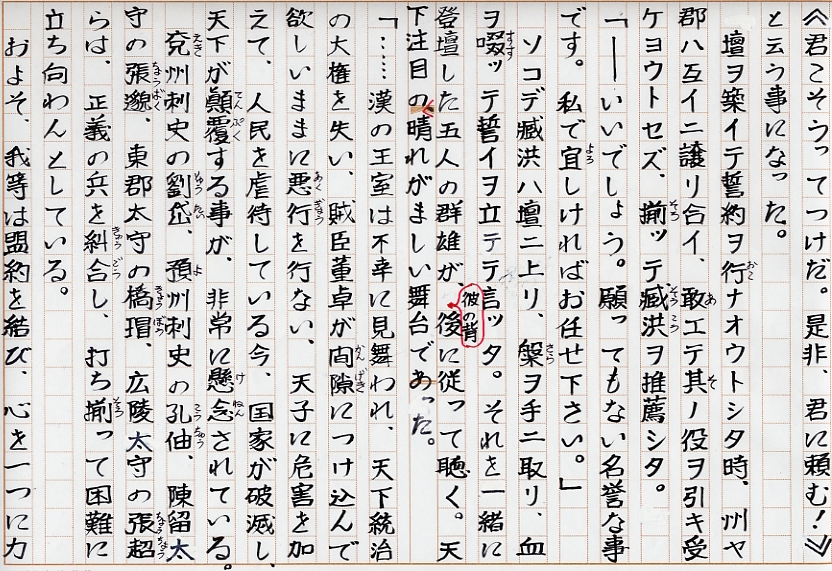 《君こそうってつけだ。是非、君に頼む!》
と云う事になった。
壇ヲ築イテ誓約ヲ行ナオウトシタ時、州ヤ
郡ハ互イニ譲リ合イ、敢エテ其ノ役ヲ引キ受
ケヨウトセズ、揃ッテ臧洪ヲ推薦シタ。
「――いいでしょう。願ってもない名誉な事
です。私で宜しければお任せ下さい。」
ソコデ臧洪ハ壇ニ上リ、槃ヲ手ニ取リ、血
ヲ啜ッテ誓イヲ立テテ言ッタ。それを一緒に
登壇した五人の群雄が、彼の背後に従って聴く。天
下注目の晴れがましい舞台であった。
「……漢の王室は不幸に見舞われ、天下統治
の大権を失い、賊臣董卓が間隙につけ込んで
欲しいままに悪行を行ない、天子に危害を加
えて、人民を虐待している今、国家が破滅し、
天下が顛覆する事が、非常に懸念されている。
兗州刺史の劉岱、預州刺史の孔伷、陳留太
守の張邈、東郡太守の橋瑁、広陵太守の張超
らは、正義の兵を糾合し、打ち揃って困難に
立ち向わんとしている。
およそ、我等は盟約を結び、心を一つに力